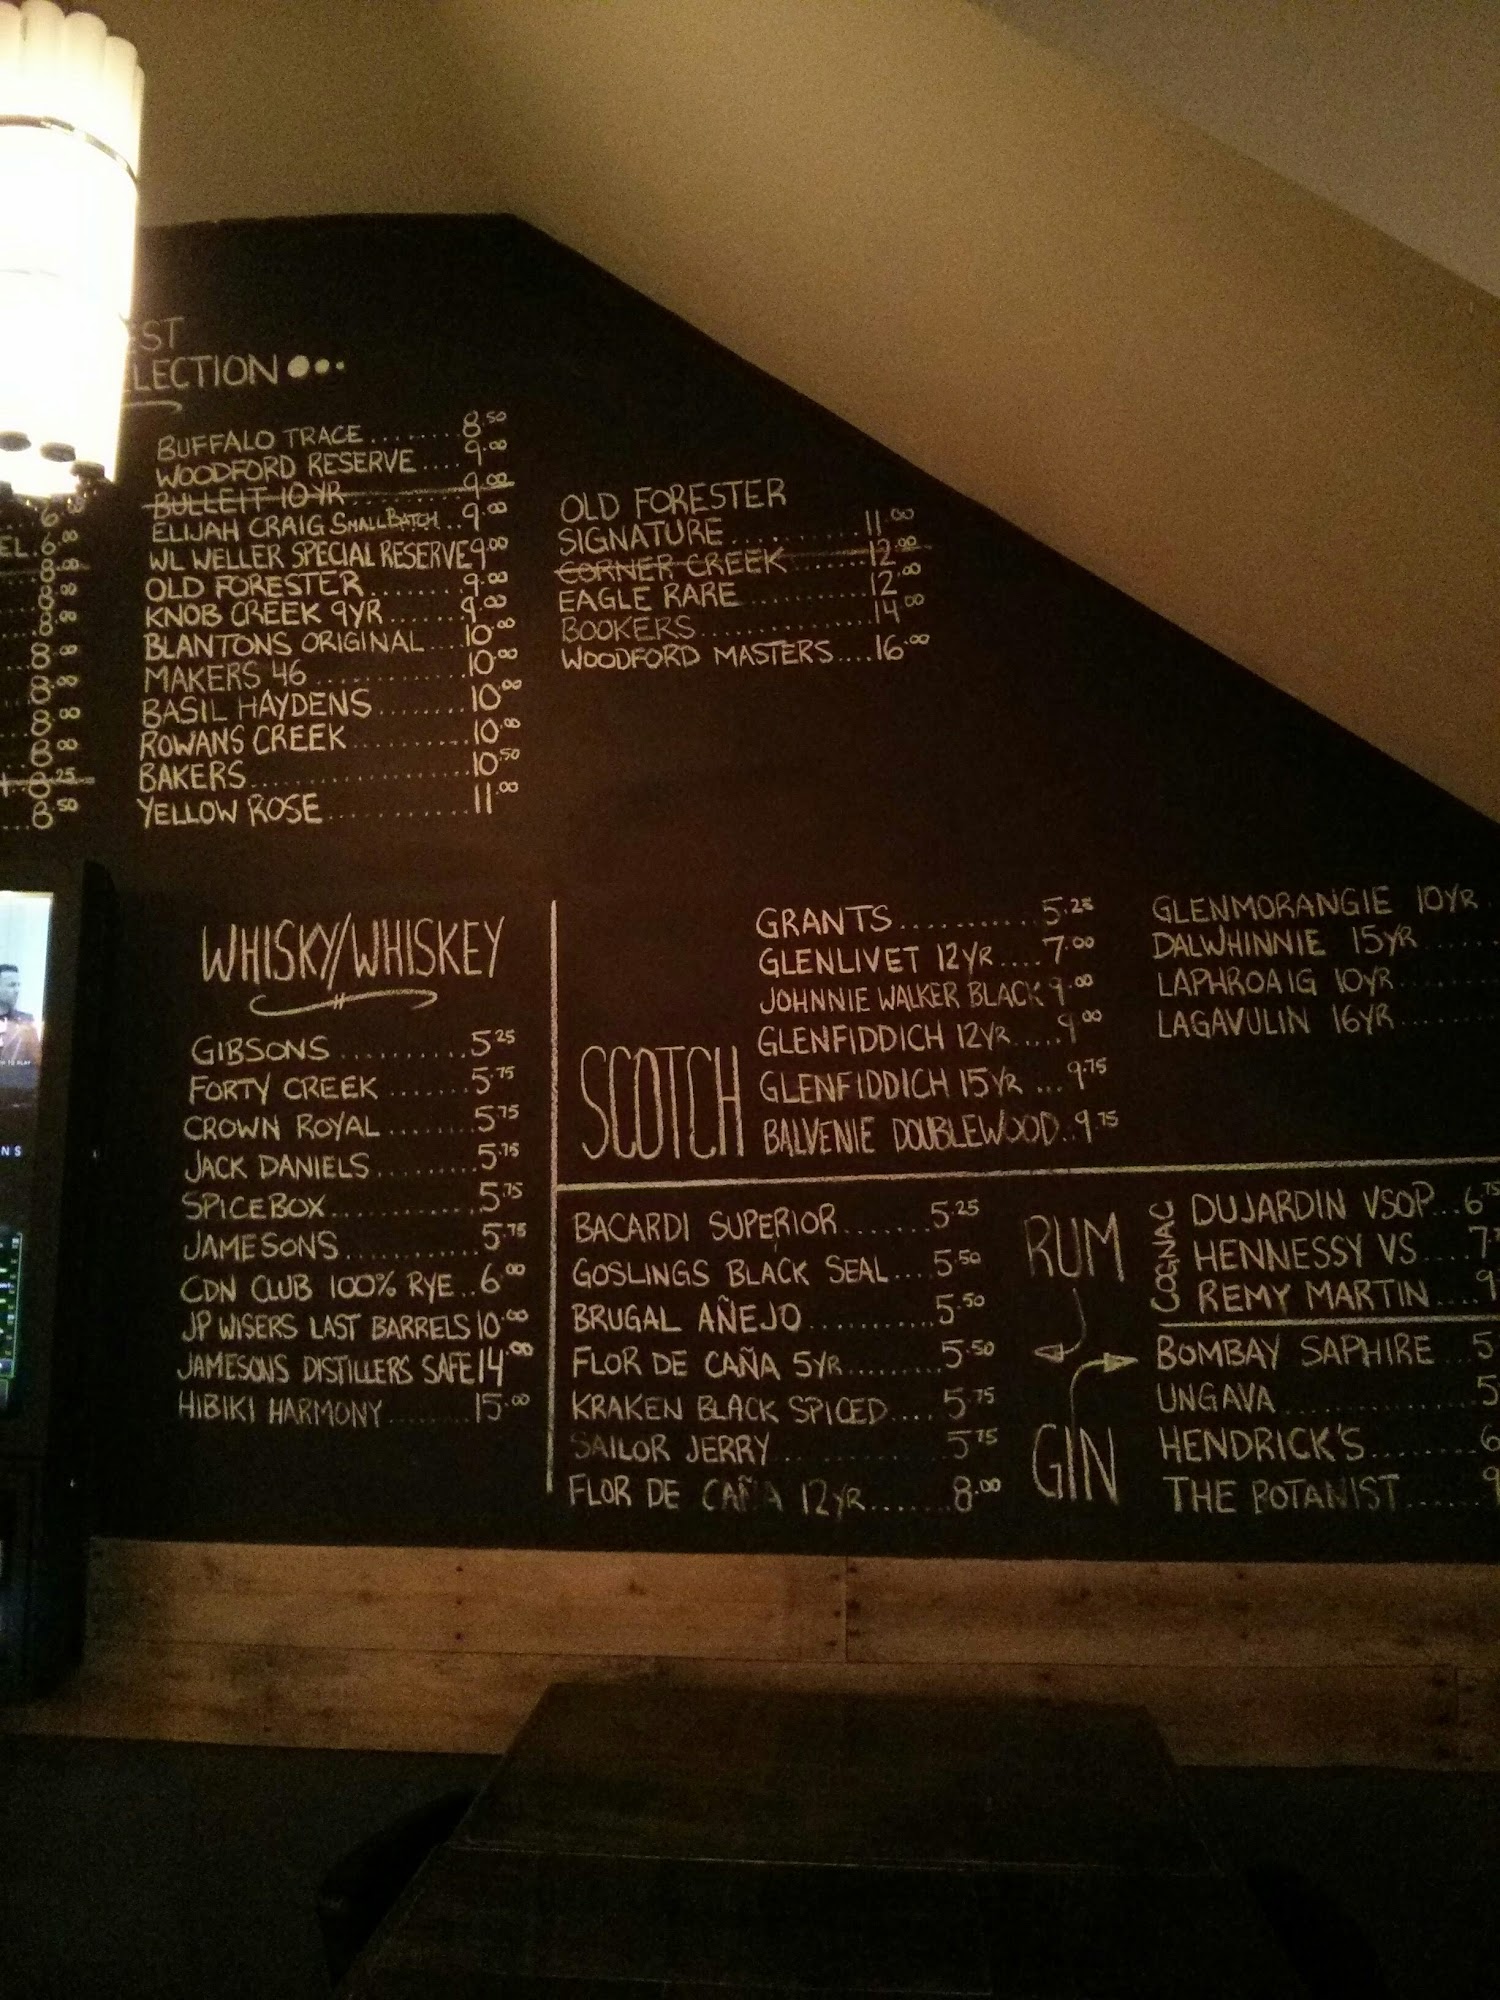 EST
LECTION
6.00
EL. 6.00
8.00
8.00
8.00
8.00
8.00
8.00
8.00
8.25
8.50
BUFFALO TRACE........8.50
WOODFORD RESERVE....9.00
BULLEIT 10YR..........9.00
ELIJAH CRAIG SMALL BATCH...9.00
WL WELLER SPECIAL RESERVE 9.00
OLD FORESTER........9.00
KNOB CREEK 9YR......9.00
BLANTONS ORIGINAL....10.00
MAKERS 46............10.00
BASIL HAYDENS........10.00
ROWANS CREEK..........10.00
BAKERS................10.50
YELLOW ROSE...........11.00
OLD FORESTER
SIGNATURE..........11.00
CORNER CREEK......12.00
EAGLE RARE..........12.00
BOOKERS.............14.00
WOODFORD MASTERS....16.00
WHISKY/WHISKEY
GIBSONS..........5.25
FORTY CREEK.......5.75
CROWN ROYAL.......5.75
JACK DANIELS.......5.75
SPICEBOX..........5.75
JAMESONS..........5.75
CDN CLUB 100% RYE..6.00
JP WISERS LAST BARRELS 10.00
JAMESONS DISTILLERS SAFE 14.00
HIBIKI HARMONY.......15.00
SCOTCH
GRANTS..........5.25
GLENLIVET 12YR....7.00
JOHNNIE WALKER BLACK 9.00
GLENFIDDICH 12YR.....9.00
GLENFIDDICH 15YR...9.75
BALVENIE DOUBLEWOOD..9.75
GLENMORANGIE 10YR.
DALWHINNIE 15YR.....
LAPHROAIG 10YR......
LAGAVULIN 16YR......
RUM
BACARDI SUPERIOR.......5.25
GOSLINGS BLACK SEAL....5.50
BRUGAL AÑEJO..........5.50
FLOR DE CAÑA 5YR.......5.50
KRAKEN BLACK SPICED....5.75
SAILOR JERRY..........5.75
FLOR DE CAÑA 12YR.......8.00
COGNAC
DUJARDIN VSOP...6.75
HENNESSY VS....7
REMY MARTIN....9
GIN
BOMBAY SAPHIRE...5
UNGAVA..........5
HENDRICK'S.......6
THE BOTANIST......9